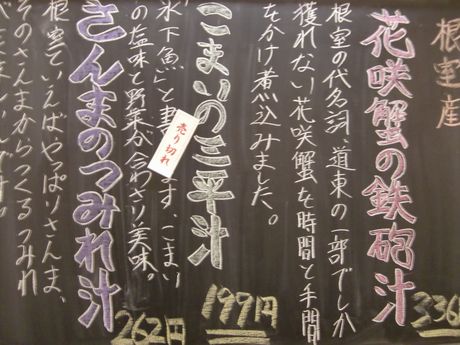 根室産
花咲蟹の鉄砲汁
336
根室の代名詞、道東の一部でしか
獲れない花咲蟹を時間と手間
をかけ煮込みました。
こまいの三平汁
売り切れ
199円
氷下魚」と書 ます、こまい
の塩味と野菜が合わさり美味。
さんまのつみれ汁
262円
根室でいえばやっぱりさんま、
そのさんまからつくるつみれ